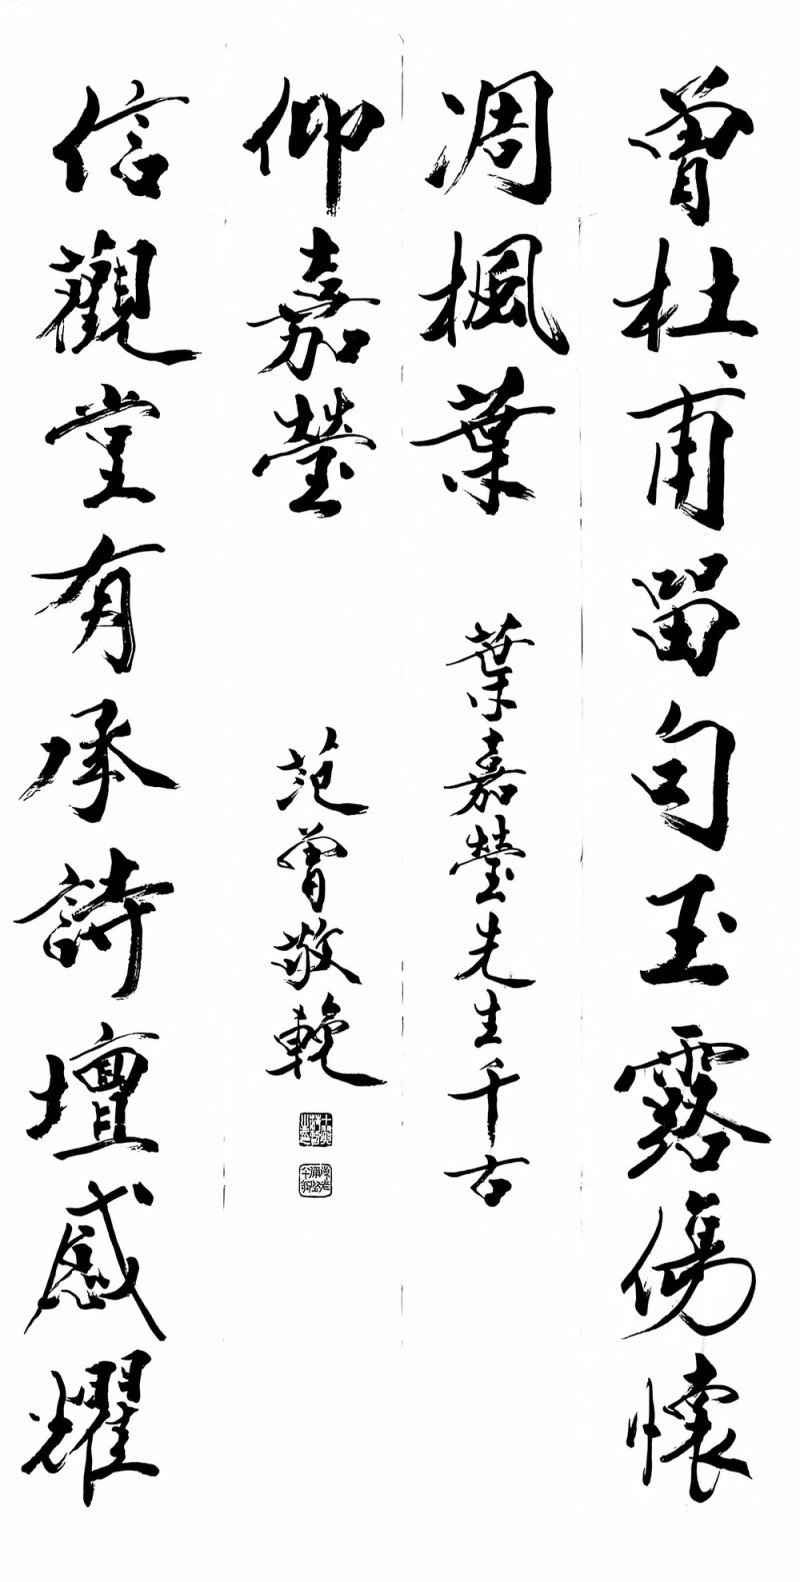 曾杜甫留句玉露傷懷
凋楓葉
葉嘉瑩先生千古
信觀堂有承詩壇感耀
仰嘉瑩
范曾敬輓